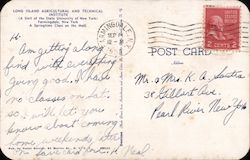 LONG ISLAND AGRICULTURAL AND TECHNICAL
INSTITUTE
(A Unit of the State University of New York)
Farmingdale, New York
A Springtime Class on the Mall.
Hi.
Am getting along
find with everything
going good. I have
no classes on Sat.
so I will let you
know about coming
home weekends
Save card for
Neal
FARMINGDALE, N.Y.
SEP
POST CARD
Address
Mr. & Mrs. K. A.
38 Gilbert Ave.
Pearl River New York
2